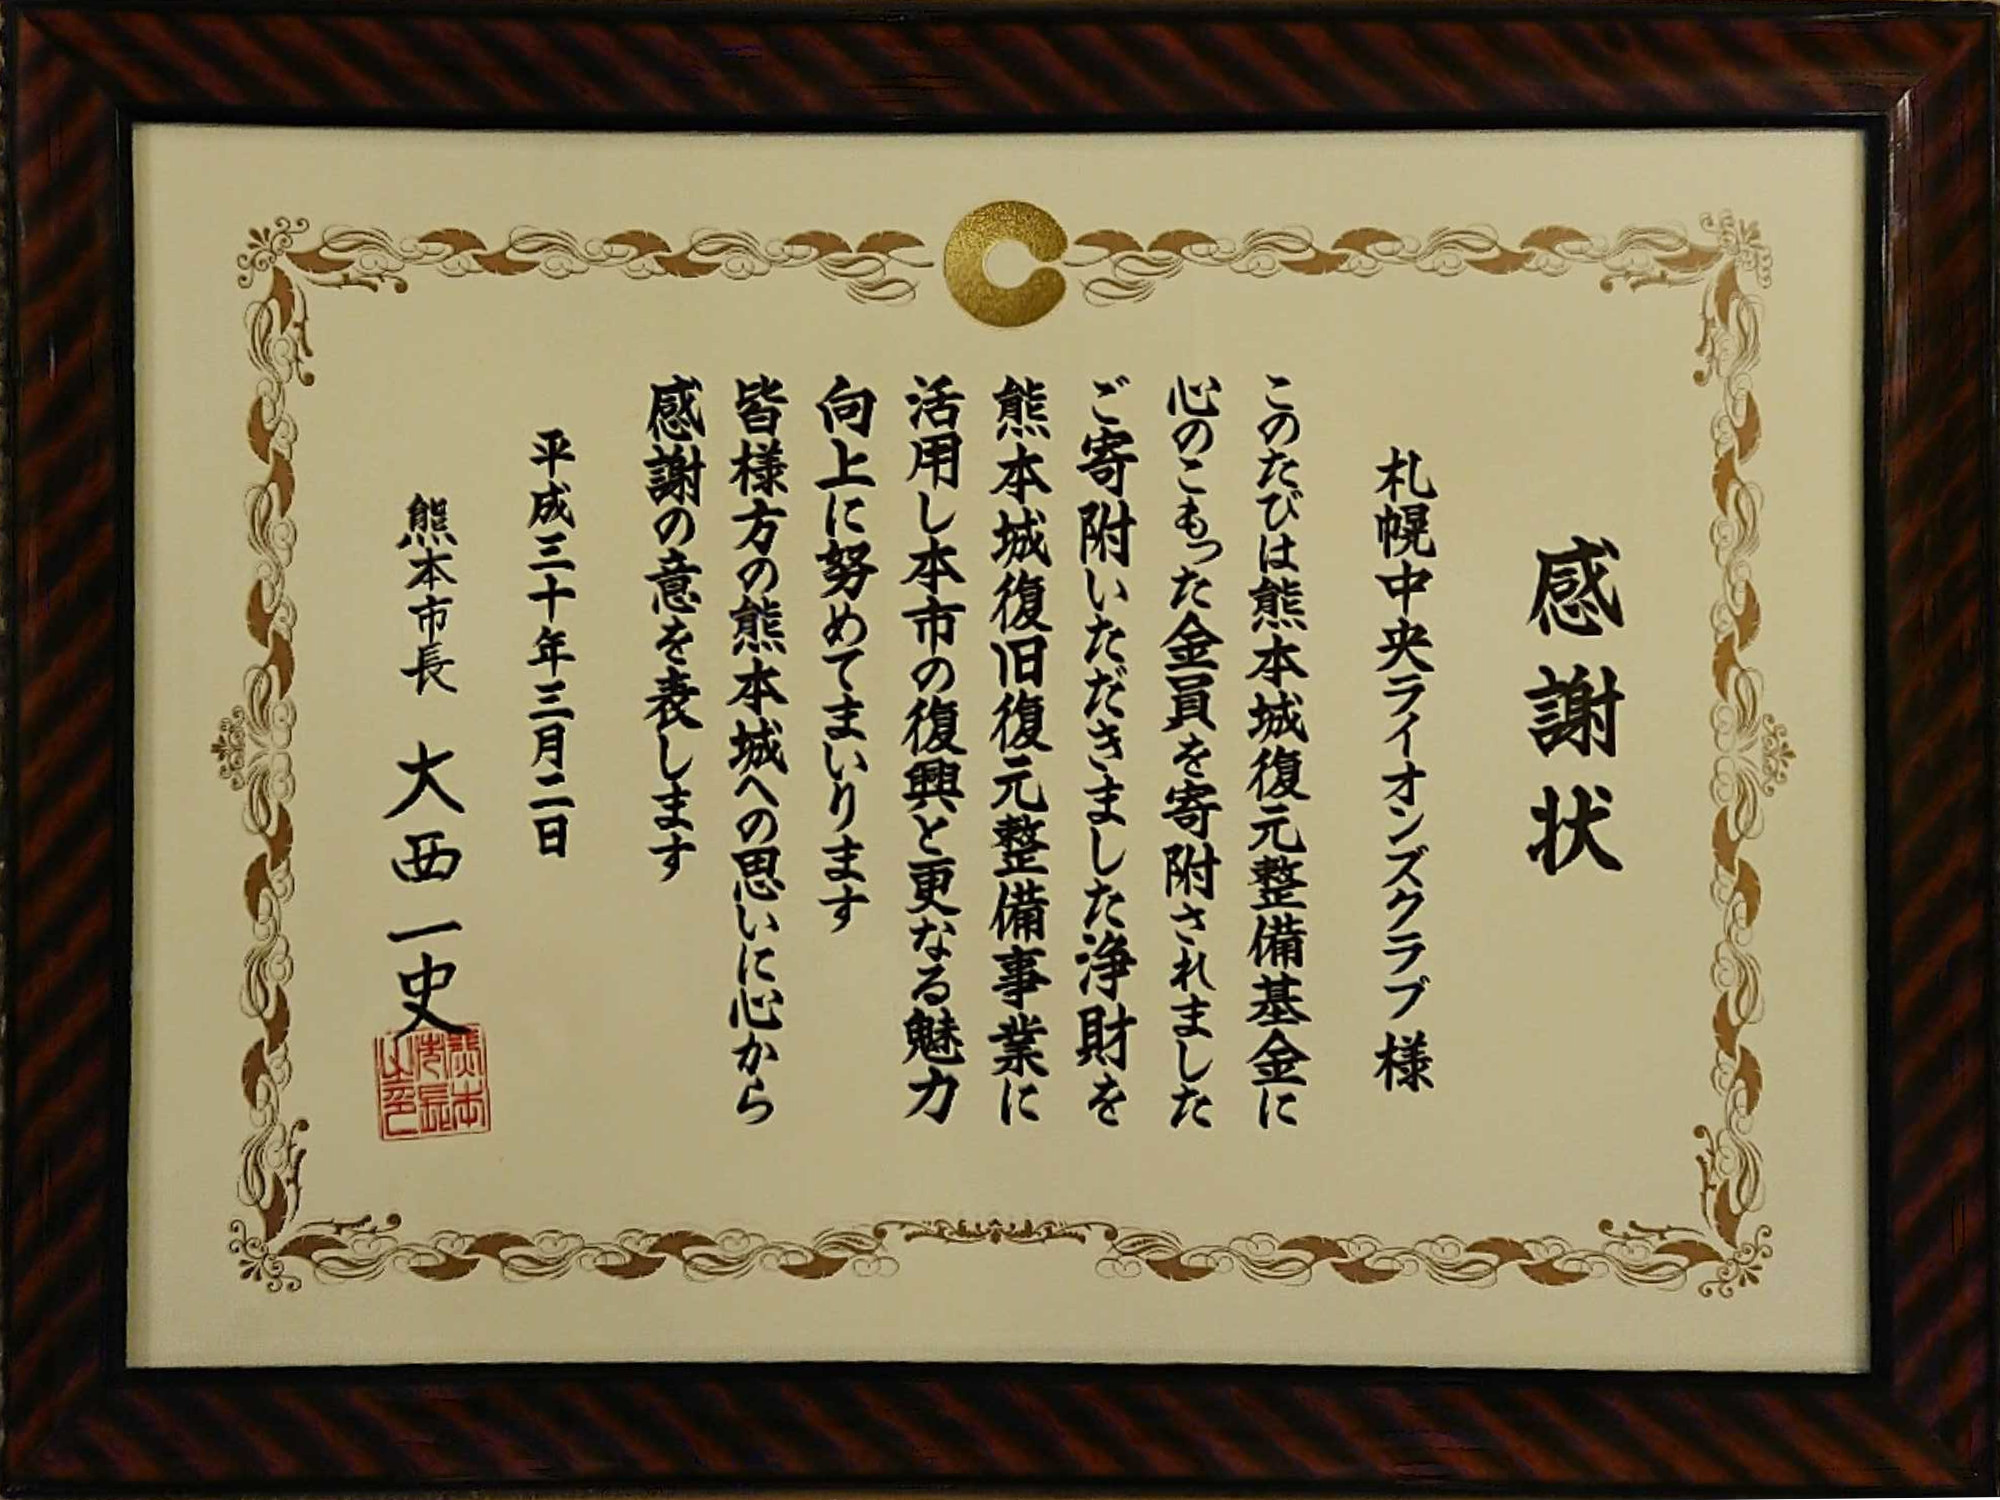 感謝状
札幌中央ライオンズクラブ 様
このたびは熊本城復元整備基金に
心のこもった金員を寄附されました
ご寄附いただきました浄財を
熊本城復旧復元整備事業に
活用し本市の復興と更なる魅力
向上に努めてまいります
皆様方の熊本城への思いに心から
感謝の意を表します
平成三十年三月二日
熊本市長 大西一史
熊本
市長
之印